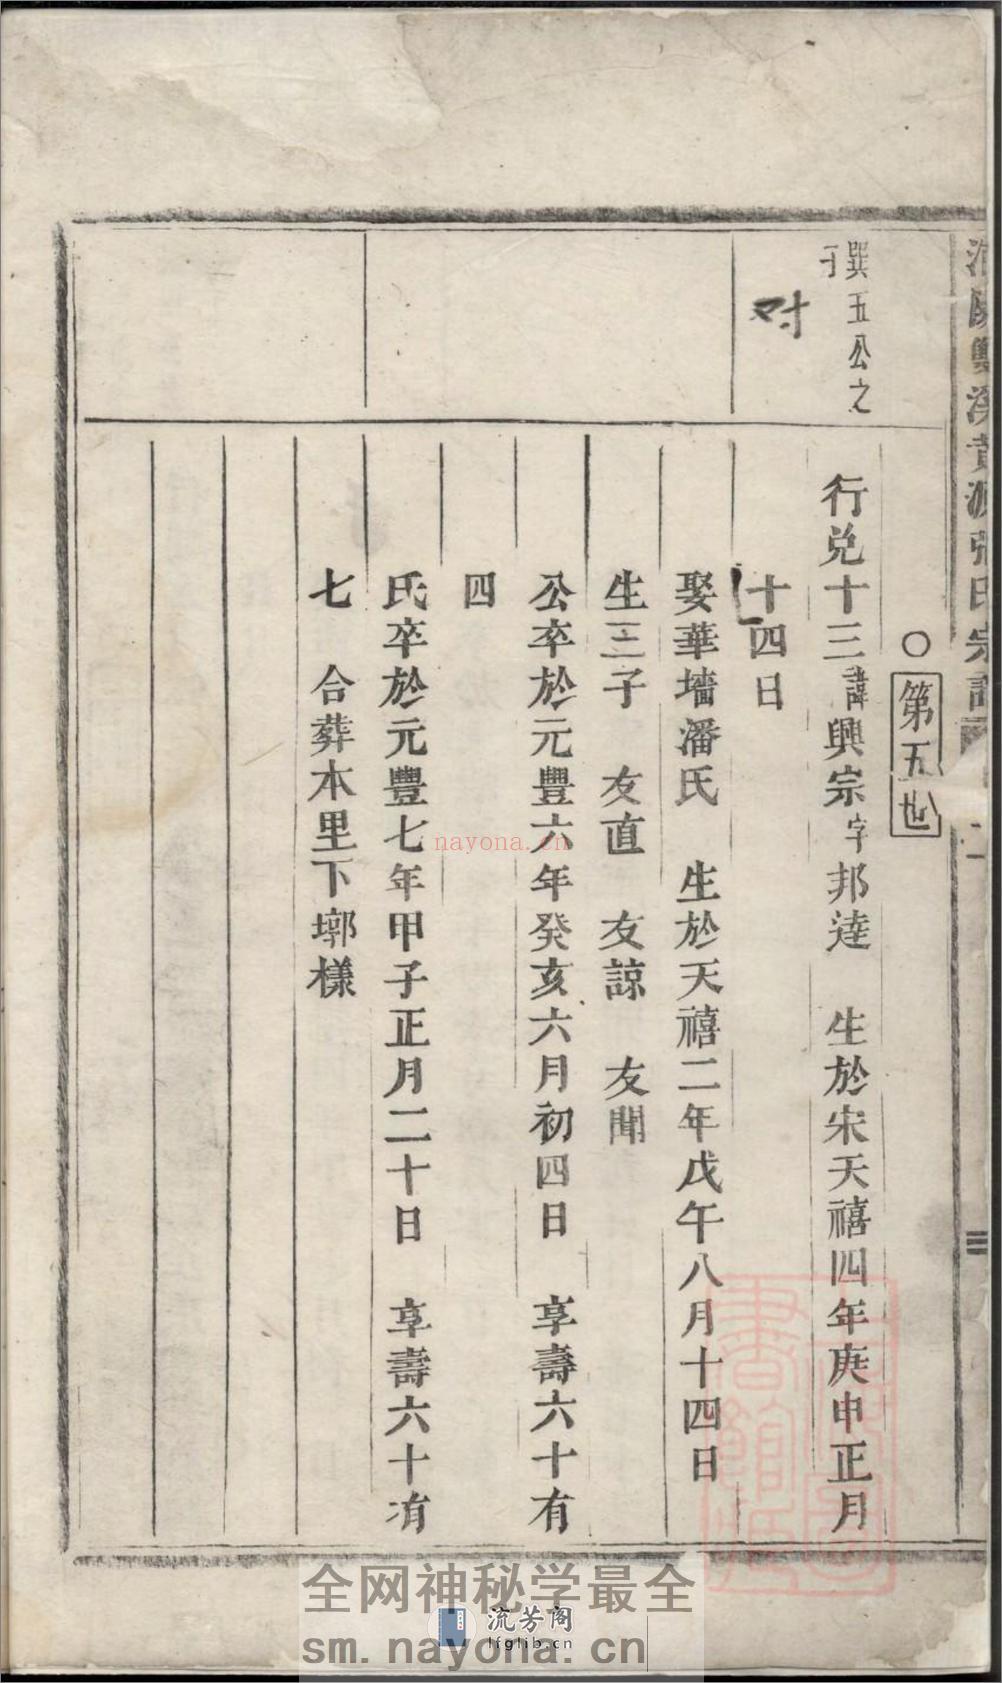 雙溪黃源張氏宗譜
二
〇第五世
巽五公之
子
对
行兌十三諱興宗字邦達　生於宋天禧四年庚申正月
十四日
娶華墻潘氏　生於天禧二年戊午八月十四日
生三子　友直　友諒　友聞
公卒於元豐六年癸亥六月初四日　享壽六十有
四
氏卒於元豐七年甲子正月二十日　享壽六十有
七　合葬本里下墎樣
nayona.cn
全网神秘学最全
流芳阁
lfglib.cn
sm.nayona.cn